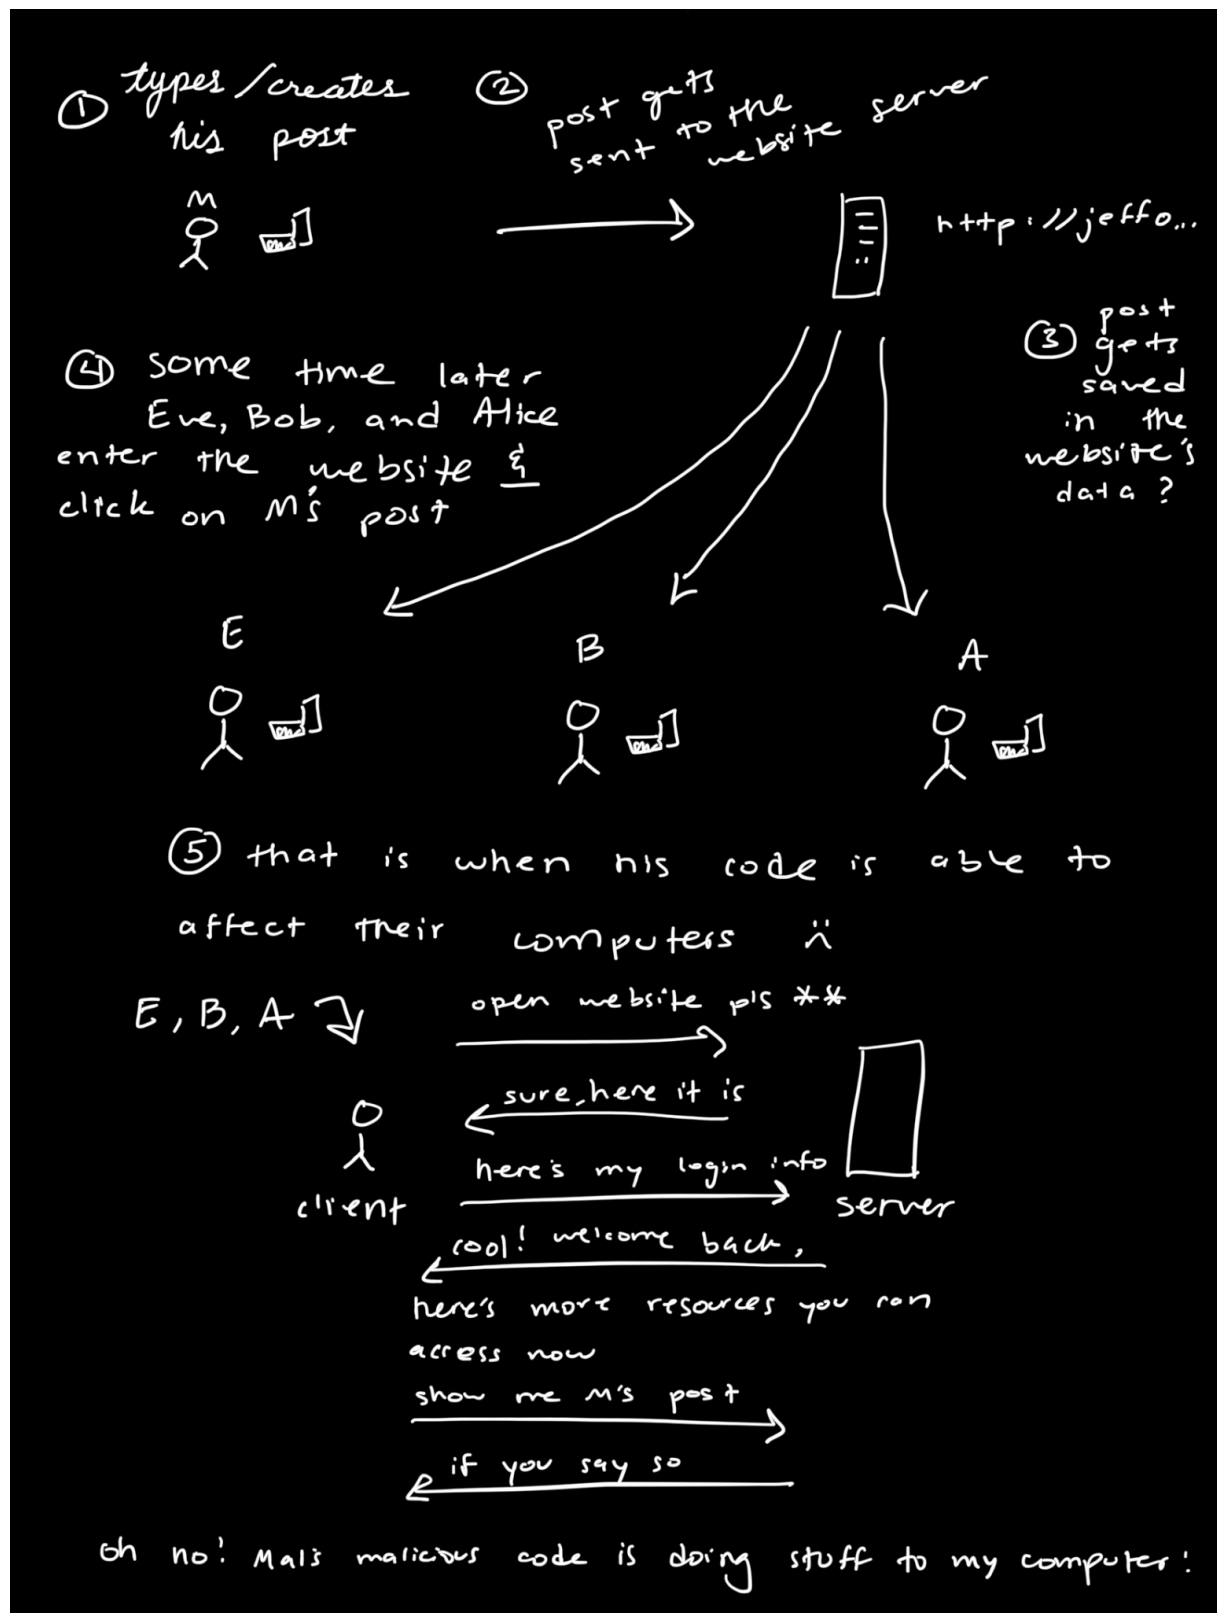 ① types/creates
his post
② post gets
sent to the
website server
M
http://jeffo...
③ post
gets
saved
in the
website's
data?
④ some time later
Eve, Bob, and Alice
enter the website &
click on M's post
E
B
A
⑤ that is when his code is able to
affect their computers :(
E, B, A
open website pls **
sure, here it is
here's my login info
client
server
cool! welcome back,
here's more resources you can
access now
show me M's post
if you say so
oh no! Mal's malicious code is doing stuff to my computer!